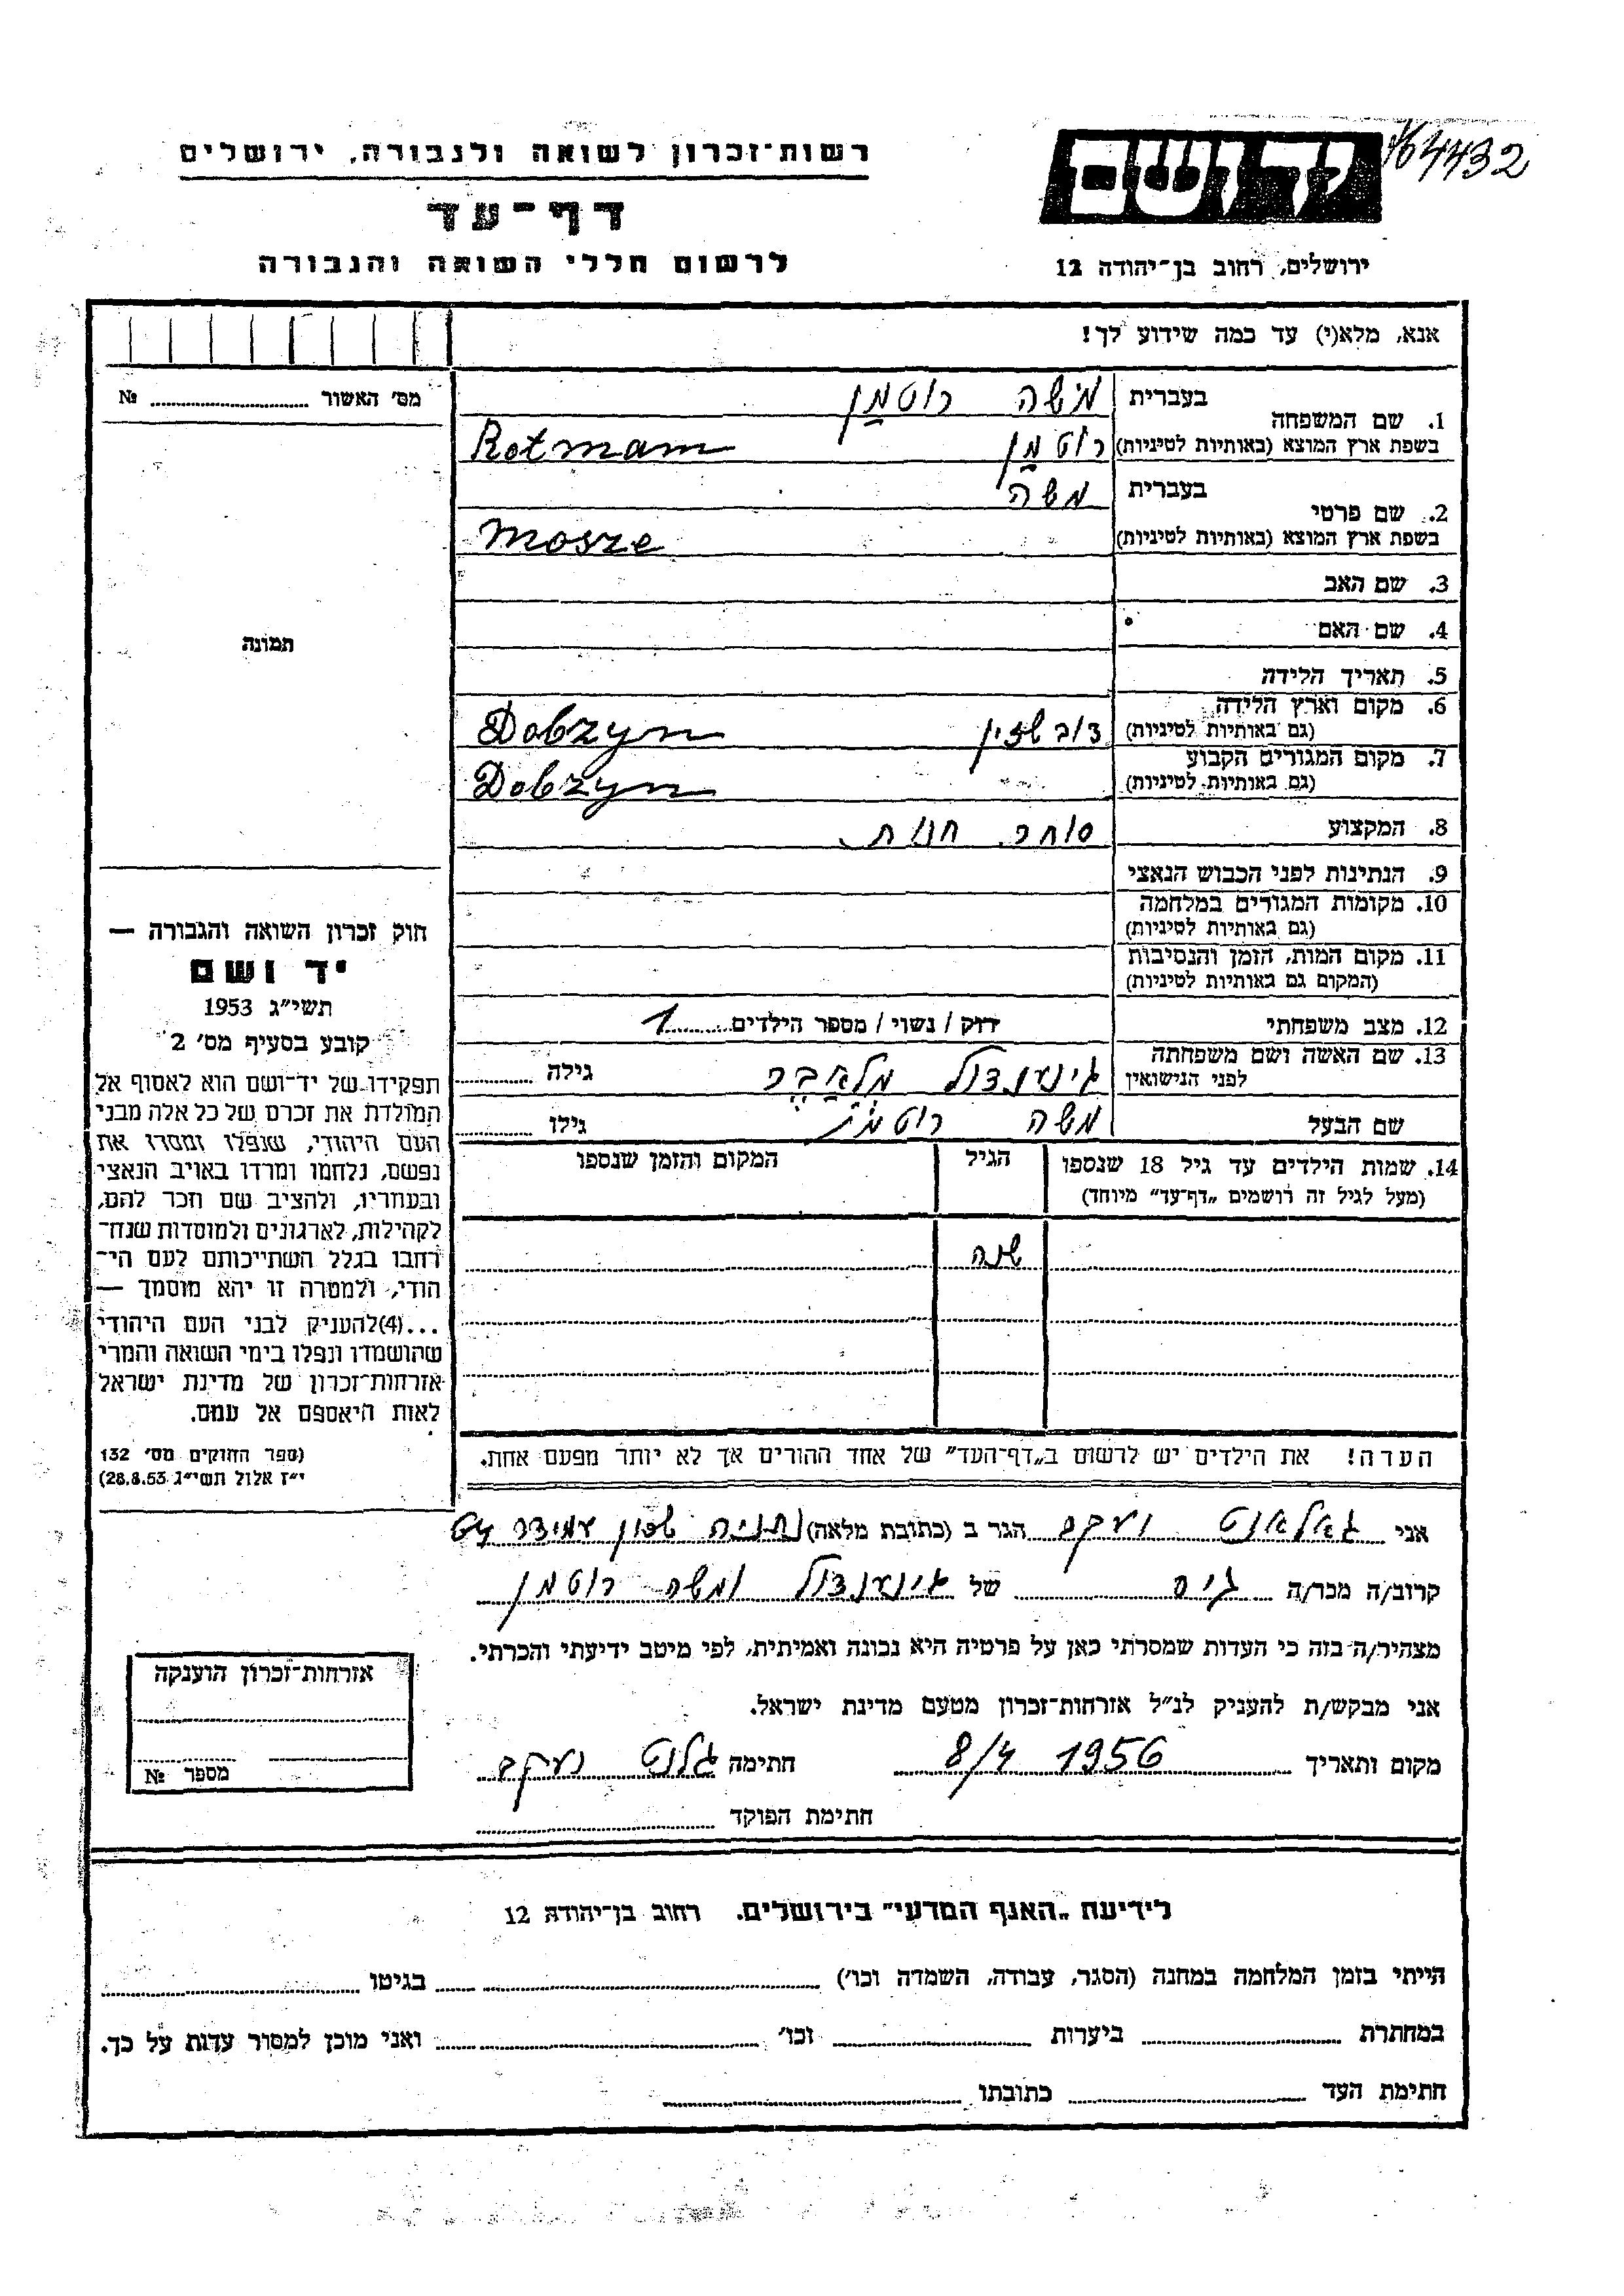 רשות־זכרון לשואה ולגבורה, ירושלים
דף־עד
לרשום חללי השואה והגבורה
יד ושם
64432
ירושלים, רחוב בן־יהודה 12
אנא, מלא(י) עד כמה שידוע לך!
מס׳ האשור № 
1. שם המשפחה
בעברית משה רוטמן
בשפת ארץ המוצא (באותיות לטיניות) רוטמן Rotmam
2. שם פרטי
בעברית משה
בשפת ארץ המוצא (באותיות לטיניות) Mosze
3. שם האב
4. שם האם
5. תאריך הלידה
6. מקום וארץ הלידה
(גם באותיות לטיניות) Dobzyn
7. מקום המגורים הקבוע
(גם באותיות לטיניות) Dobzyn
8. המקצוע סוחר חנות
9. הנתינות לפני הכבוש הנאצי
10. מקומות המגורים במלחמה
(גם באותיות לטיניות)
11. מקום המות, הזמן והנסיבות
(המקום גם באותיות לטיניות)
12. מצב משפחתי רוק / נשוי / מספר הילדים 1
13. שם האשה ושם משפחתה
לפני הנישואין גילה
שם הבעל משה רוטמן גילו
14. שמות הילדים עד גיל 18 שנספו
(מעל לגיל זה רושמים „דף־עד״ מיוחד)
הגיל
המקום והזמן שנספו
שנה
הערה! את הילדים יש לרשום ב„דף־העד״ של אחד ההורים אך לא יותר מפעם אחת.
תמונה
חוק זכרון השואה והגבורה —
יד ושם
תשי״ג 1953
קובע בסעיף מס׳ 2
תפקידו של יד־ושם הוא לאסוף אל
המולדת את זכרם של כל אלה מבני
העם היהודי, שנפלו ומסרו את
נפשם, נלחמו ומרדו באויב הנאצי
ובעוזריו, ולהציב שם וזכר להם,
לקהילות, לארגונים ולמוסדות שנח־
רחבו בגלל השתייכותם לעם הי־
הודי, ולמטרה זו יהא מוסמך —
...(4)להעניק לבני העם היהודי
שהושמדו ונפלו בימי השואה והמרי
אזרחות־זכרון של מדינת ישראל
לאות היאספם אל עמם.
(ספר החוקים מס׳ 132
י״ז אלול תשי״ג 28.8.53)
אני יעקב הגר ב (כתובת מלאה) נתניה שכון עמידר 64
קרוב/ה מכר/ה גיס של ומשה רוטמן
מצהיר/ה בזה כי העדות שמסרתי כאן על פרטיה היא נכונה ואמיתית, לפי מיטב ידיעתי והכרתי.
אני מבקש/ת להעניק לנ״ל אזרחות־זכרון מטעם מדינת ישראל.
מקום ותאריך 8/4 1956 חתימה גלנט יעקב
חתימת הפוקד
אזרחות־זכרון הוענקה
מספר №
לידיעת „האגף המדעי״ בירושלים. רחוב בן־יהודה 12
הייתי בזמן המלחמה במחנה (הסגר, עבודה, השמדה וכו׳) בגיטו
במחתרת ביערות וכו׳ ואני מוכן למסור עדות על כך.
חתימת העד כתובתו